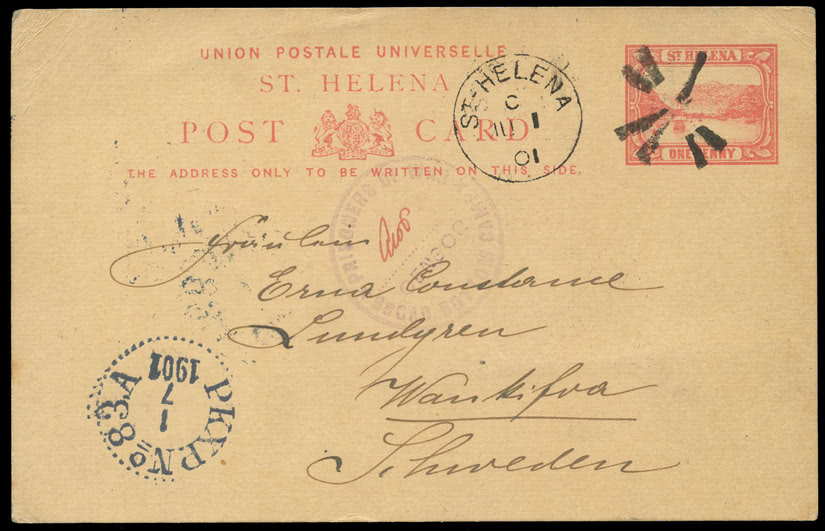 UNION POSTALE UNIVERSELLE
ST. HELENA
POST CARD
THE ADDRESS ONLY TO BE WRITTEN ON THIS SIDE.
ST. HELENA
ONE PENNY
ST. HELENA
C
1
01
PRISONERS OF
CENSOR
Fräulein
Erna Constance
Lundgren
Wankifva
Schweden
PKXP. No 83 A
1
7
1901